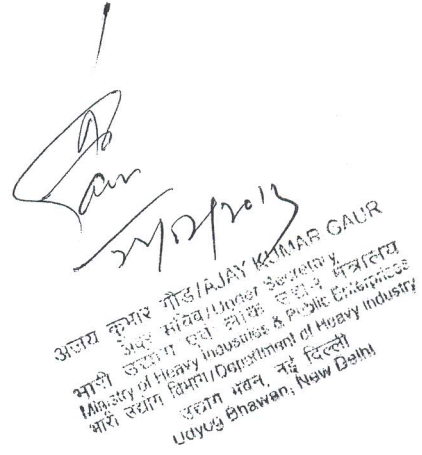 अजय कुमार गौड/AJAY KUMAR GAUR
अवर सचिव/Under Secretary
भारी उद्योग एवं लोक उद्यम मंत्रालय
Ministry of Heavy Industries & Public Enterprises
भारी उद्योग विभाग/Department of Heavy Industry
उद्योग भवन, नई दिल्ली
Udyog Bhawan, New Delhi